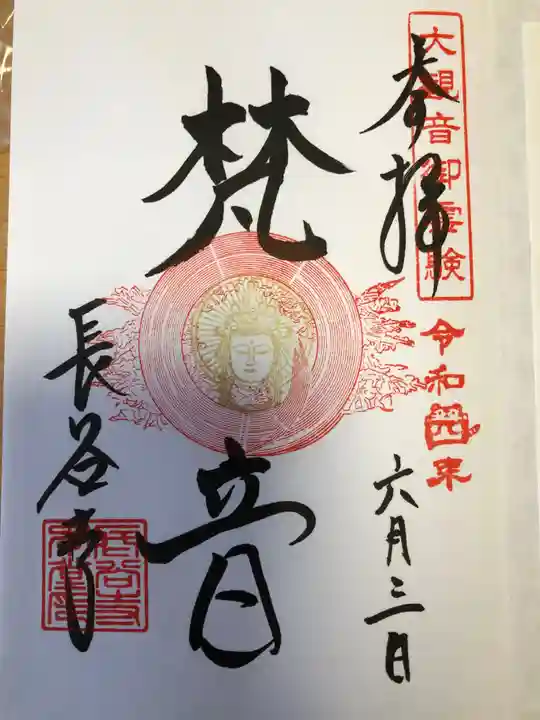 大観音御霊験
奉拝
令和四年
六月三日
梵音
長谷寺